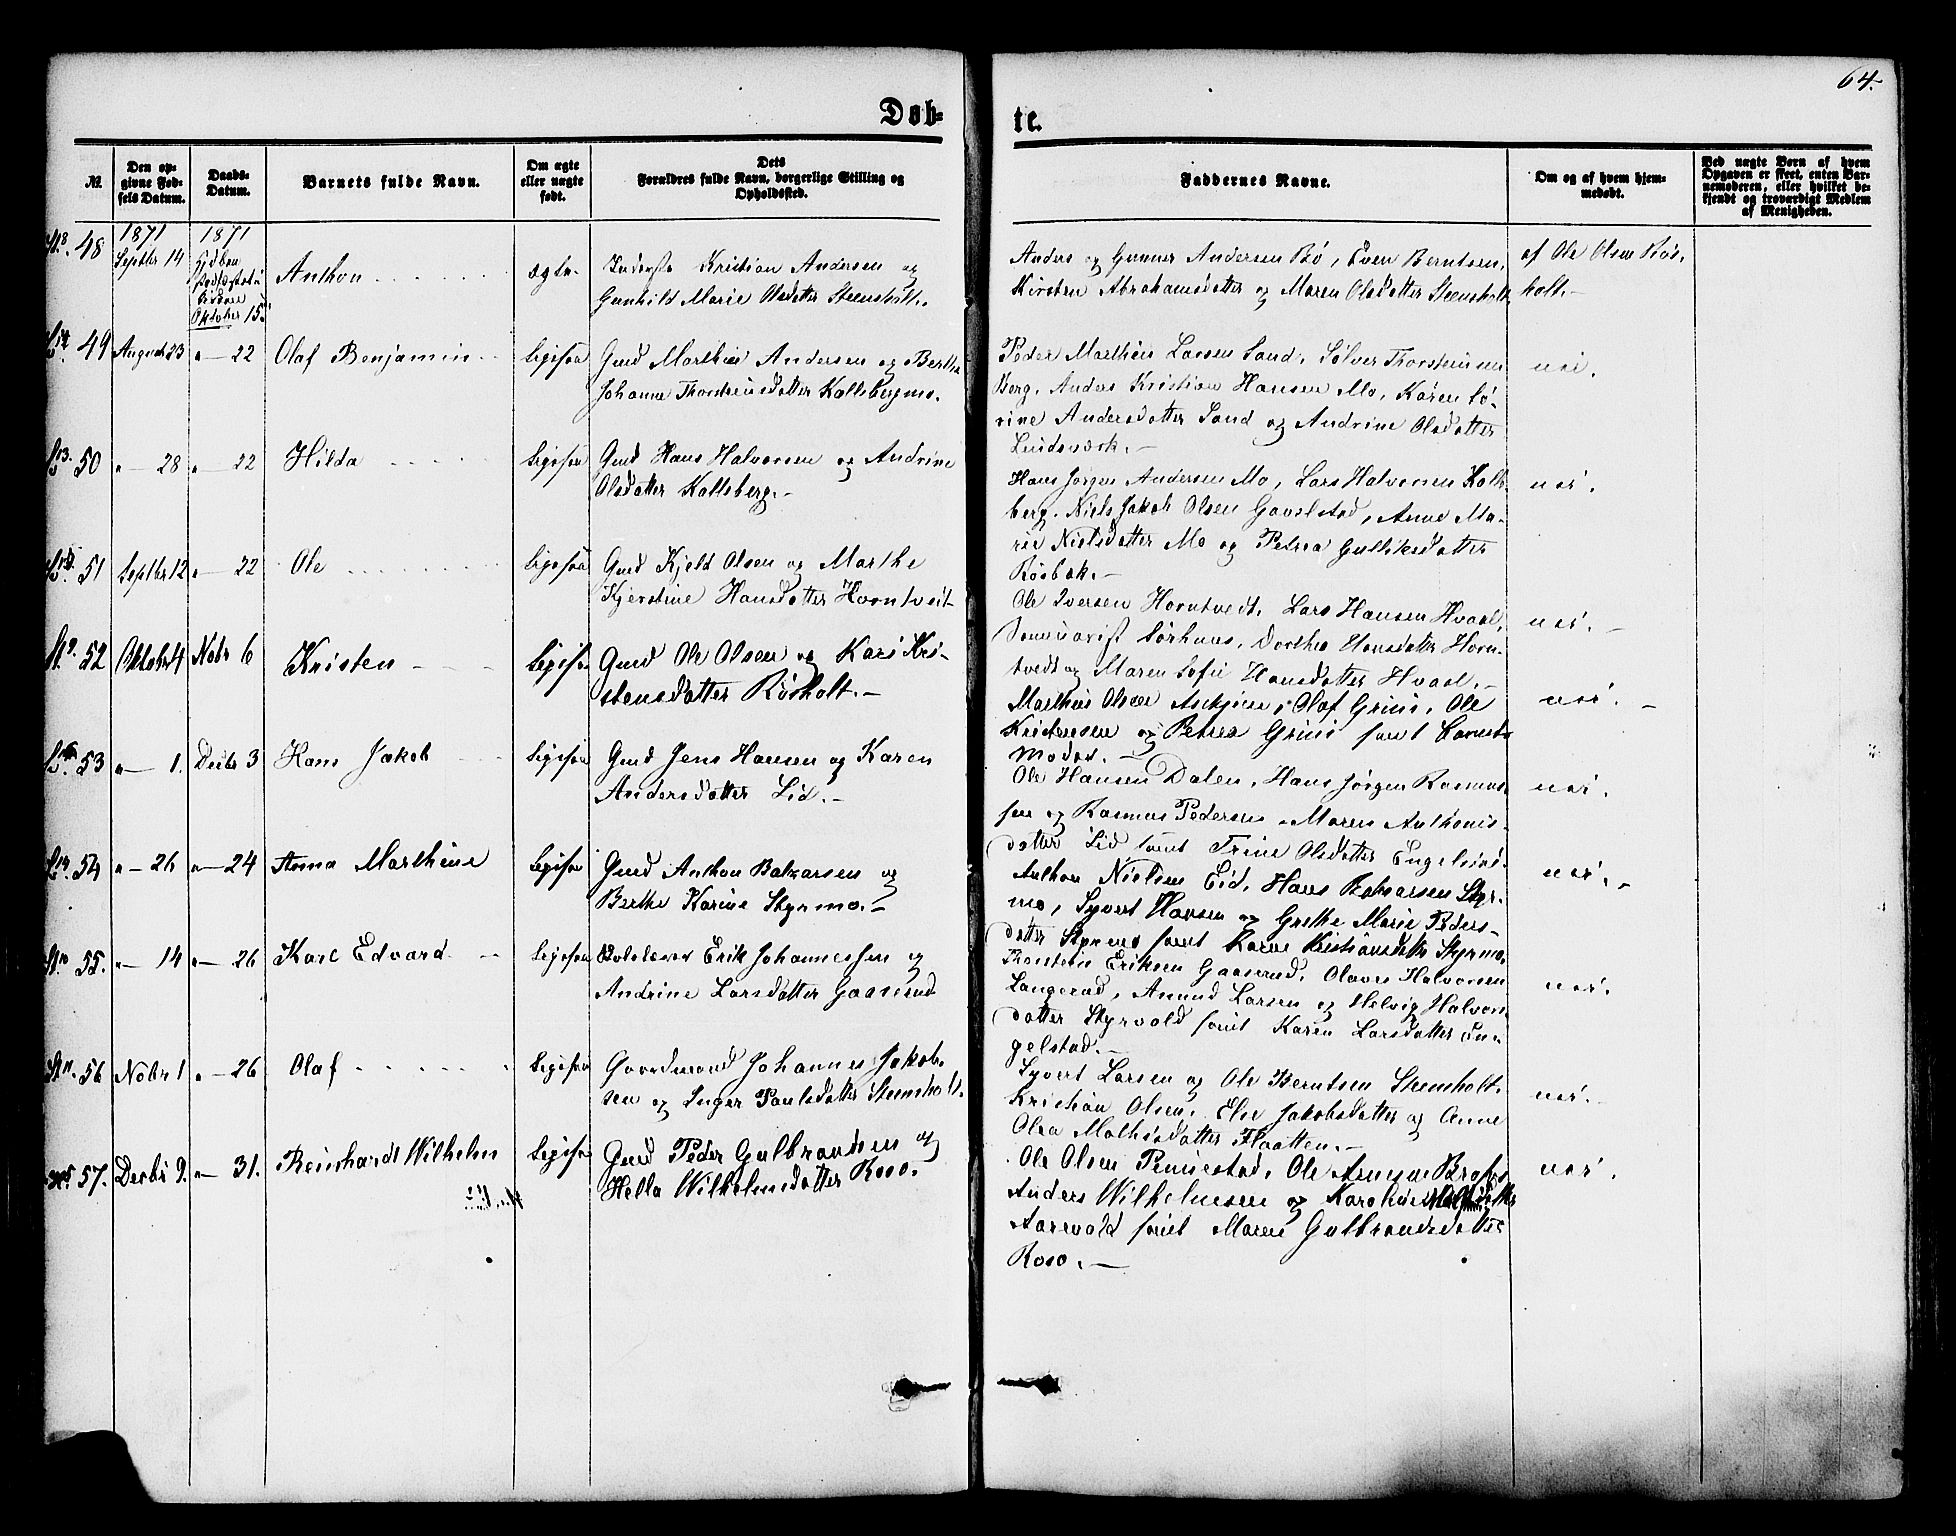 64.
Døb-
te.
№
Den op-
givne Fød-
sels Datum.
Daabs-
Datum.
Barnets fulde Navn.
Om ægte
eller uægte
født.
Dets
Forældres fulde Navn, borgerlige Stilling og
Opholdssted.
Faddernes Navne.
Om og af hvem hjem-
medøbt.
Ved uægte Børn af hvem
Opgaven er skeet, enten Bar-
nemoderen, eller hvilket be-
kjendt og troværdigt Medlem
af Menigheden.
48
1871
Septbr 14
1871
Oktober 15
Anthon
ægte
Inderste Kristian Andersen og
Gunhild Marie Olsdatter Steensholt.
Anders og Gunner Andersen Bø, Even Berntsen,
Kirsten Abrahamsdatter og Maren Olsdatter Steensholt
af Ole Olsen Røs-
holt.-
49
August 23
" - 22
Olaf Benjamin
ligesaa
Gmd Marthin Andersen og Berthe
Johanne Thorstensdatter Kallsbergmo.
Peder Marthin Larsen Sand, Sølver Thorstensen
Berg, Anders Kristian Hansen Mo, Karen Sø-
rine Andersdatter Sand og Andrine Olsdatter
Lindsværk.-
nei.
50
" - 28
" - 22
Hilda
ligesaa
Gmd Hans Halvorsen og Andrine
Olsdatter Kallsberg.-
Hans Jørgen Andersen Mo, Lars Halvorsen Kalls-
berg, Niels Jakob Olsen Gavelstad, Anne Ma-
rie Nielsdatter Mo og Petrea Gulliksdatter
Røsbæk.-
nei.
51
Septbr 12
" - 22
Ole
ligesaa
Gmd Kjeld Olsen og Marthe
Kjerstine Hansdatter Horntvedt
Ole Iversen Horntvedt, Lars Hansen Hvaal,
Sørhuus, Dorthea Hansdatter Horn-
tvedt og Maren Sofie Hansdatter Hvaal.-
nei.-
52
Oktober 4
Novbr 6
Kristen
ligesaa
Gmd Ole Olsen og Kari Kri-
stensdatter Røsholt.-
Marthin Olsen Askjen, Olaf Grini, Ole
Kristensen og Petrea Grini samt Barnets
Moder.-
nei.-
53
" - 1.
Decbr 3
Hans Jakob
ligesaa
Gmd Jens Hansen og Karen
Andersdatter Lid.-
Ole Hansen Dalen, Hans Jørgen Rasmus-
sen og Rasmus Pedersen, Maren Anthonis-
datter Lid samt Trine Olsdatter
nei.
54
" - 26
" - 24
Anna Marthine
ligesaa
Gmd Anthon Balzarsen og
Berthe Karine Styrmo.-
Anthon Nielsen Eid, Hans Balzarsen Styr-
mo, Syvert Hansen og Grethe Marie Peders-
datter Styrmo samt Karen Kristiansdatter Styrmo.
nei.-
55.
" - 14
" - 26
Karl Edvard
ligesaa
Skolelærer Erik Johannessen og
Andrine Larsdatter Gaaserud
Thorstein Eriksen Gaaserud, Olaves Halvorsen
Langerud, Amund Larsen og Helvig Halvors-
datter Styrvold samt Karen Larsdatter En-
gelstad.-
nei.
56
Novbr 1
" - 26
Olaf
ligesaa
Gaardmand Johannes Jakob-
sen og Inger Paulsdatter Steensholt.
Syvert Larsen og Ole Berntsen Steensholt,
Kristian Olsen, Else Jakobsdatter og Anne
Olea Mathisdatter Flaatten.-
nei.-
57.
Decbr 9.
" - 31.
Reinhardt Wilhelm
ligesaa
Gmd Peder Gulbrandsen og
Hella Wilhelmsdatter Roso.
Ole Olsen Pennestad, Ole
Anders Wilhelmsen og Karoline
Aarevold samt Maren Gulbrandsdatter
Roso.-
nei.